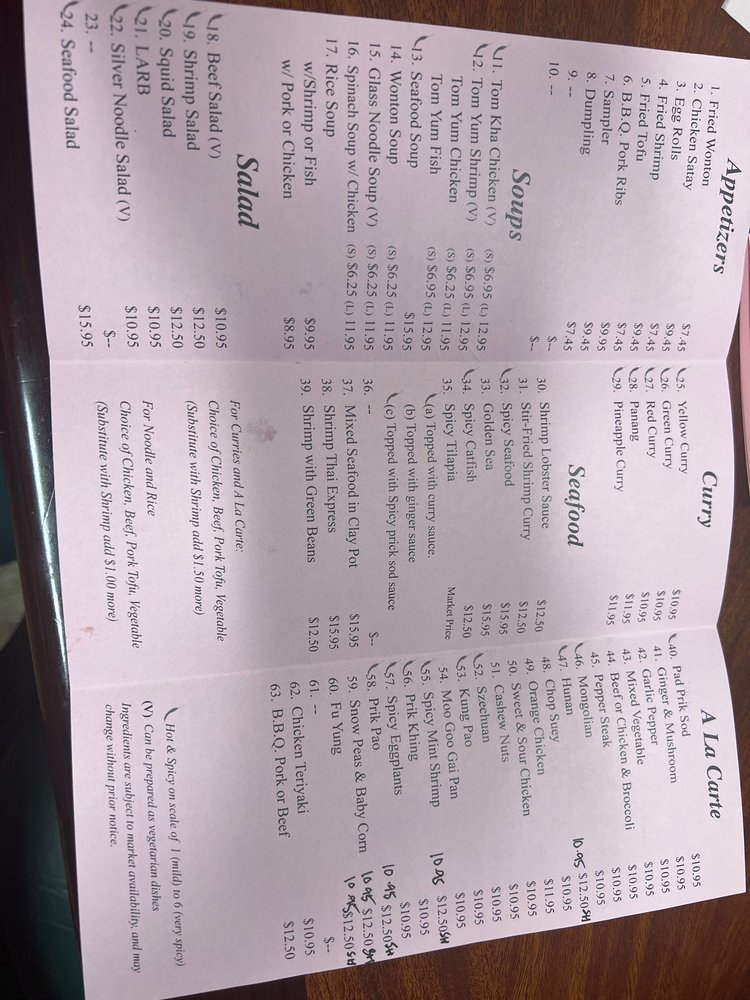 Appetizers
1. Fried Wonton $7.45
2. Chicken Satay $9.45
3. Egg Rolls $7.45
4. Fried Shrimp $9.45
5. Fried Tofu $7.45
6. B.B.Q. Pork Ribs $9.95
7. Sampler $9.45
8. Dumpling $7.45
9. -- $--
10. -- $--
Soups
11. Tom Kha Chicken (V) (S) $6.95 (L) 12.95
12. Tom Yum Shrimp (V) (S) $6.95 (L) 12.95
Tom Yum Chicken (S) $6.95 (L) 11.95
Tom Yum Fish (S) $6.95 (L) 12.95
13. Seafood Soup $15.95
14. Wonton Soup (S) $6.25 (L) 11.95
15. Glass Noodle Soup (V) (S) $6.25 (L) 11.95
16. Spinach Soup w/ Chicken (S) $6.25 (L) 11.95
17. Rice Soup
w/Shrimp or Fish $9.95
w/ Pork or Chicken $8.95
Salad
18. Beef Salad (V) $10.95
19. Shrimp Salad $12.50
20. Squid Salad $12.50
21. LARB $10.95
22. Silver Noodle Salad (V) $10.95
23. -- $--
24. Seafood Salad $15.95
Curry
25. Yellow Curry $10.95
26. Green Curry $10.95
27. Red Curry $10.95
28. Panang $11.95
29. Pineapple Curry $11.95
Seafood
30. Shrimp Lobster Sauce $12.50
31. Stir-Fried Shrimp Curry $12.50
32. Spicy Seafood $15.95
33. Golden Sea $15.95
34. Spicy Catfish $12.50
35. Spicy Tilapia Market Price
(a) Topped with curry sauce.
(b) Topped with ginger sauce
(c) Topped with Spicy prick sod sauce
36. -- $--
37. Mixed Seafood in Clay Pot $15.95
38. Shrimp Thai Express $15.95
39. Shrimp with Green Beans $12.50
For Curries and A La Carte:
Choice of Chicken, Beef, Pork Tofu, Vegetable
(Substitute with Shrimp add $1.50 more)
For Noodle and Rice
Choice of Chicken, Beef, Pork Tofu, Vegetable
(Substitute with Shrimp add $1.00 more)
A La Carte
40. Pad Prik Sod $10.95
41. Ginger & Mushroom $10.95
42. Garlic Pepper $10.95
43. Mixed Vegetable $10.95
44. Beef or Chicken & Broccoli $10.95
45. Pepper Steak $10.95
46. Mongolian $10.95
47. Hunan 10.95 $12.50 SH
48. Chop Suey $10.95
49. Orange Chicken $11.95
50. Sweet & Sour Chicken $10.95
51. Cashew Nuts $10.95
52. Szechuan $10.95
53. Kung Pao $10.95
54. Moo Goo Gai Pan $10.95
55. Spicy Mint Shrimp 10.95 $12.50 SH
56. Prik Khing $10.95
57. Spicy Eggplants $10.95
58. Prik Pao 10.95 $12.50 SH
59. Snow Peas & Baby Corn 10.95 $12.50 SH
60. Fu Yung 10.95 $12.50 SH
61. -- $--
62. Chicken Teriyaki $10.95
63. B.B.Q. Pork or Beef $12.50
Hot & Spicy on scale of 1 (mild) to 6 (very spicy)
(V) Can be prepared as vegetarian dishes
Ingredients are subject to market availability, and may
change without prior notice.